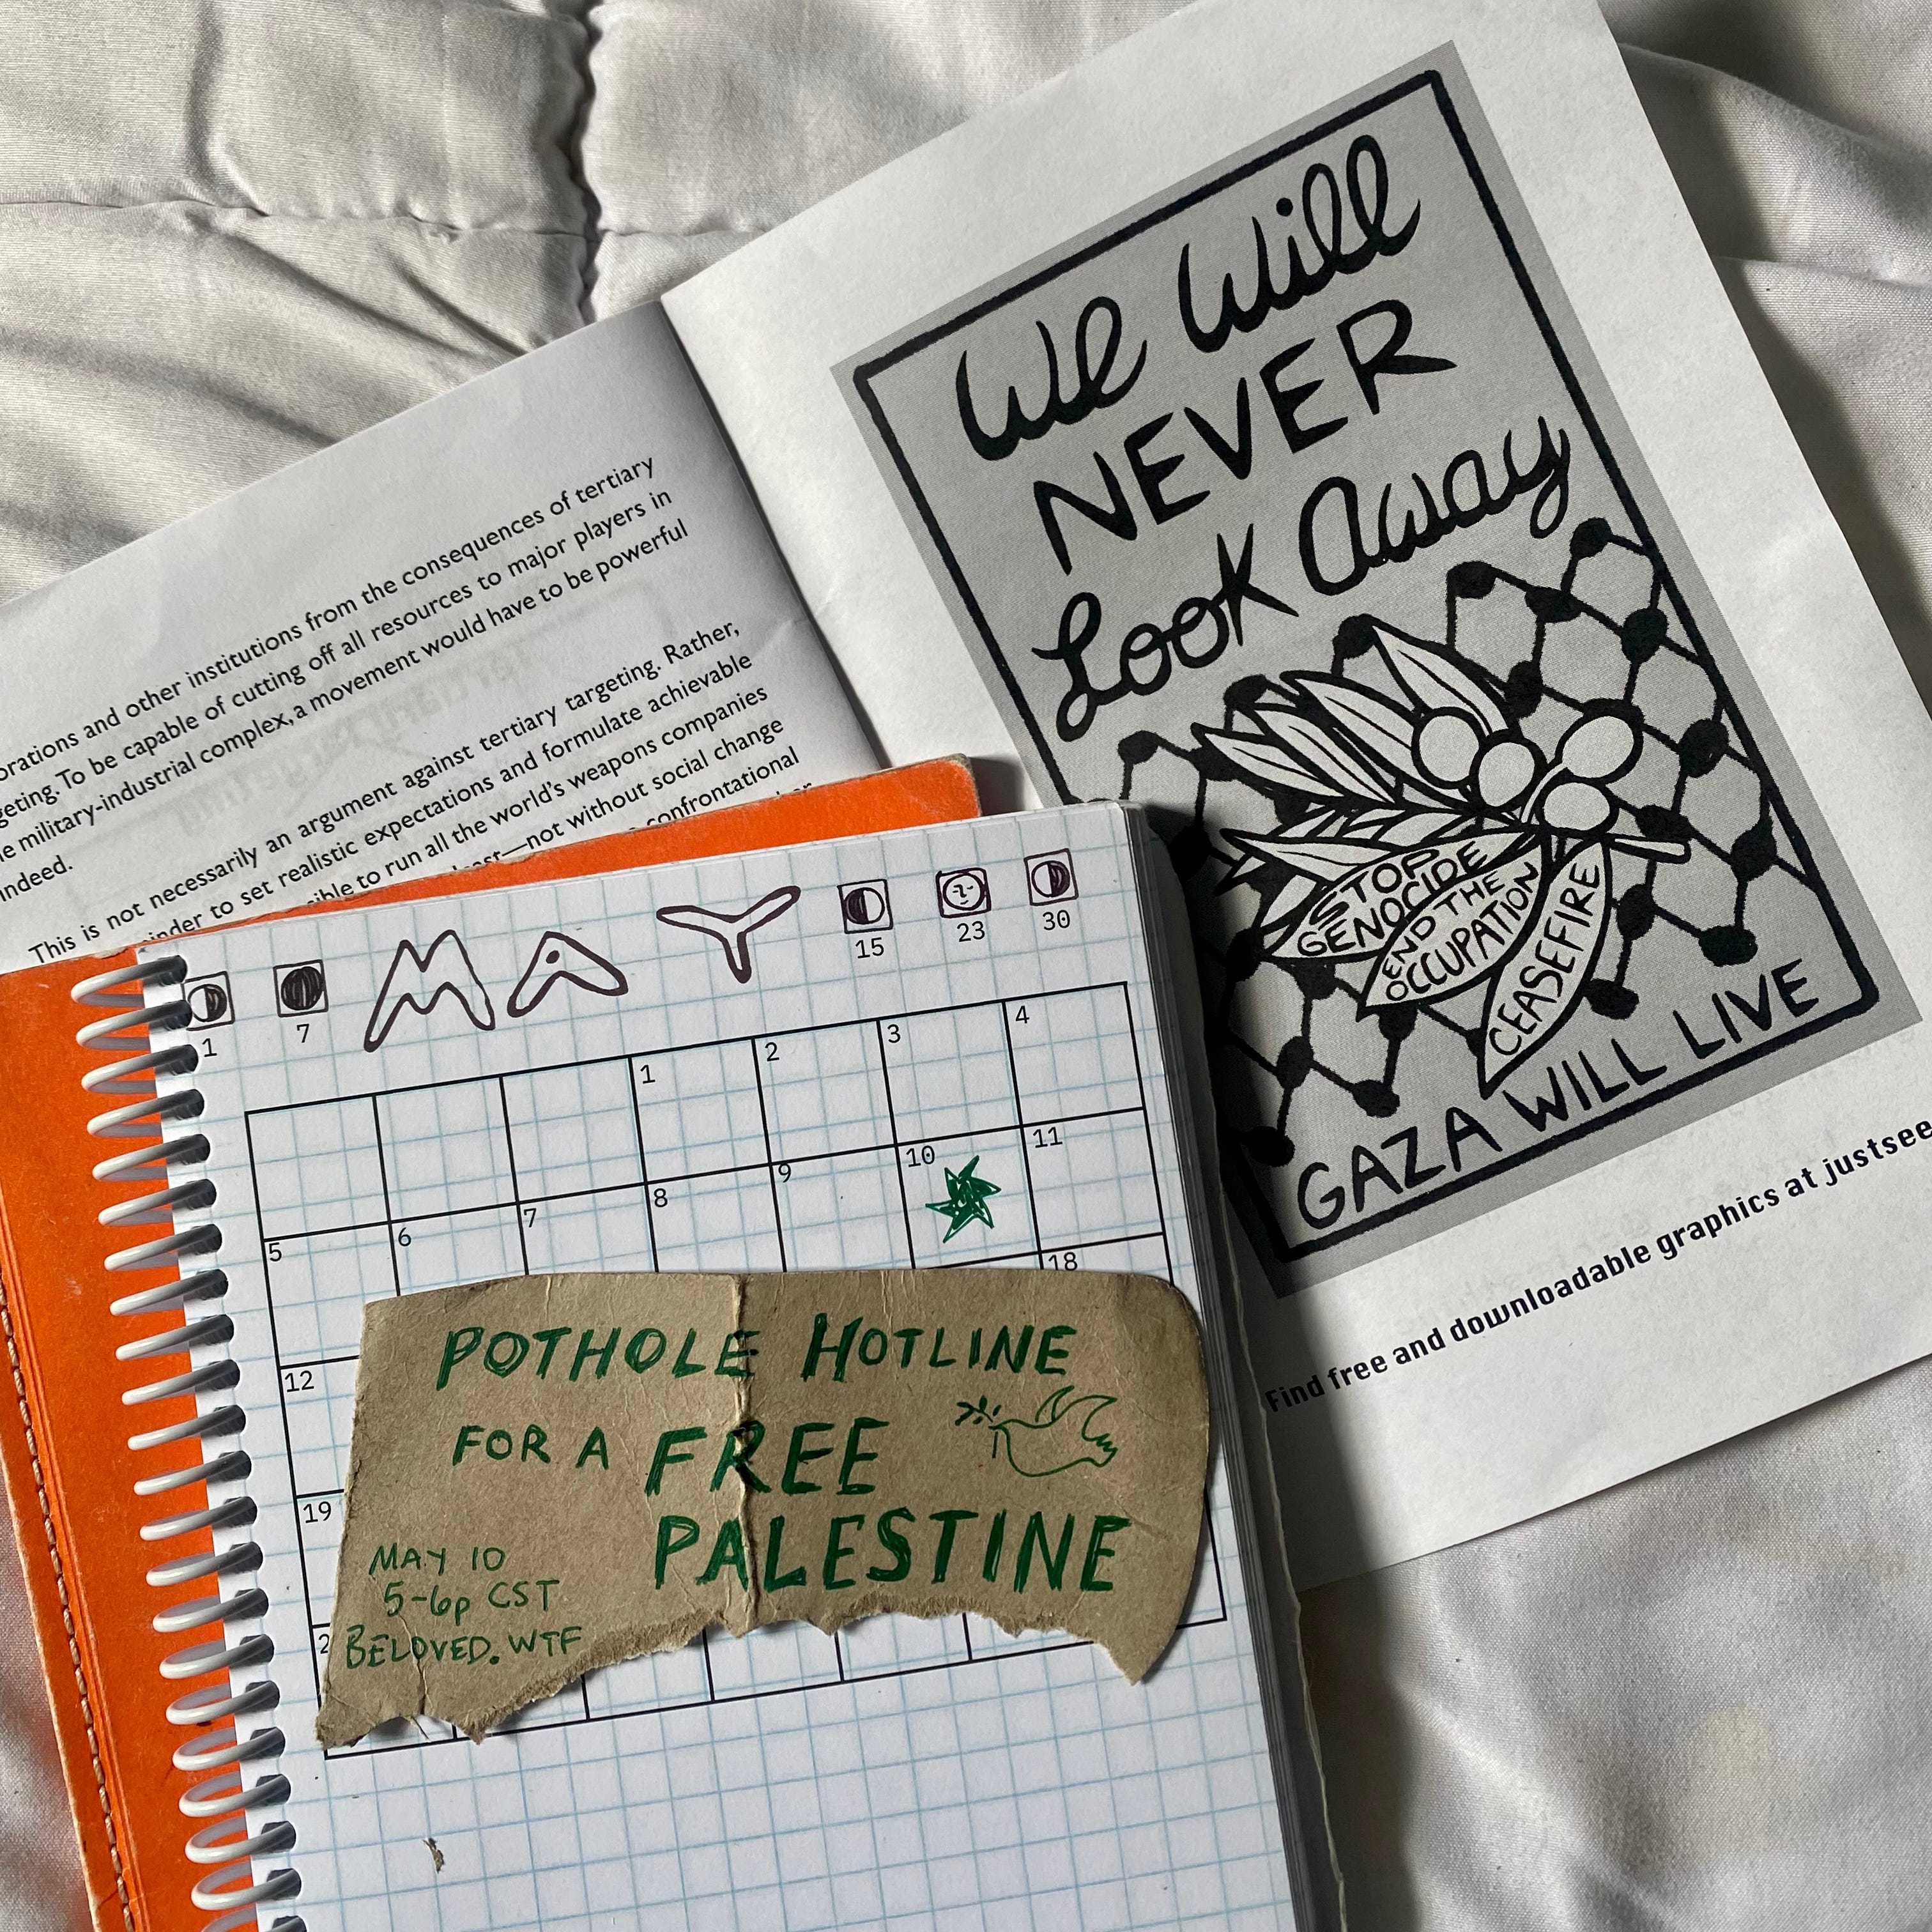 orations and other institutions from the consequences of tertiary
geting. To be capable of cutting off all resources to major players in
military-industrial complex, a movement would have to be powerful
indeed.
This is not necessarily an argument against tertiary targeting. Rather,
to set realistic expectations and formulate achievable
to run all the world's weapons companies
—not without social change
confrontational
We Will
NEVER
Look Away
STOP
GENOCIDE
END THE
OCCUPATION
CEASEFIRE
GAZA WILL LIVE
Find free and downloadable graphics at justsee
MAY
1
7
15
23
30
1
2
3
4
5
6
7
8
9
10
11
12
18
19
POTHOLE HOTLINE
FOR A FREE
PALESTINE
MAY 10
5-6p CST
BELOVED.WTF